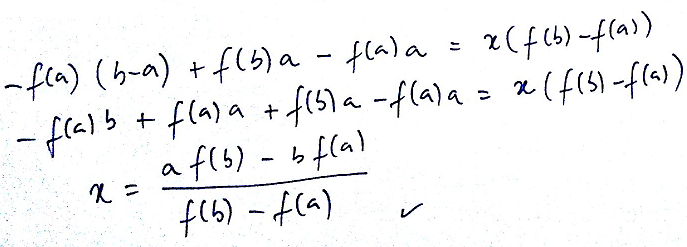 -f(a) (b-a) + f(b) a - f(a) a = x(f(b)-f(a))
- f(a) b + f(a) a + f(b) a - f(a) a = x (f(b)-f(a))
x = \frac{a f(b) - b f(a)}{f(b) - f(a)} ✓